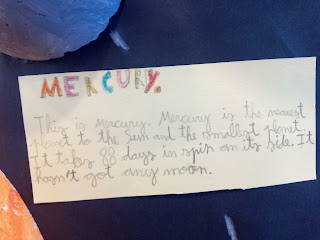 MERCURY.
This is Mercury. Mercury is the nearest
planet to the Sun and the smallest planet.
It takes 88 days in spin on its side. It
hasn't got any moon.